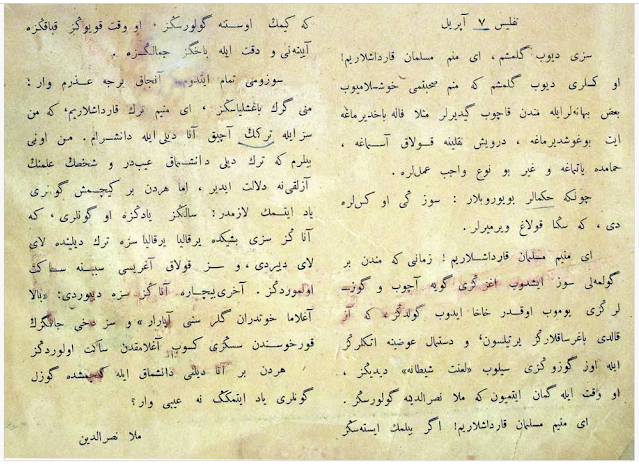 تفلیس ۷ آپریل
سزی دیوب گلمشم، ای منم مسلمان قارداشلاریم!
او کسلری دیوب گلمشم که منم صحبتمی خوشلامیوب
بعض بهانه‌لرایله مندن قاچوب گیدیرلر مثلا فاله باخدیرماغه
ایت بوغوشدیرماغه ، درویش نقلینه قولاق آسماغه ،
حمامده یاتماغه و غیر بو نوع واجب عمللره.
چونکه حکمالر بویوروبلار : سوز گی او کس‌لره
دی، که سکا قولاغ ویرمیرلر.
ای منیم مسلمان قارداشلاریم! زمانی که مندن بر
گولمه‌لی سوز ایشدوب اغزڭزی گویه آچوب و گوز‌ـ
لرڭزی یوموب اوقدر خاخا ایدوب گولدڭز، که آز
قالدی باغرساقلارڭز یرتیلسون، و دستمال عوضنه اتکلرڭز
ایله اوز گوزوڭزی سیلوب «لعنت شیطانه» دیدیڭز ،
او وقت ایله گمان ایتمیون که ملا نصرالدینه گولورسڭز.
ای منیم مسلمان قارداشلاریم! اگر بیلمك ایسته‌سڭز
که کیمڭ اوسته گولورسڭز، او وقت قویوڭز قباقڭزه
آینه‌نی و دقت ایله باخڭز جمالڭزه .
سوزومی تمام ایتدوم آنجاق برجه عذرم وار :
منی گرك باغشلیاسڭز ، ای منیم ترك قارداشلاریم، که من
سز ایله ترکڭ آچیق آنا دیلی ایله دانشرام. من اونی
بیلرم که ترك دیلی دانشماق عیب‌در و شخصڭ علمنڭ
آزلقی‌نه دلالت ایدیر، اما هردن بر کیچمش گونلری
یاد ایتمك لازمدر: سالڭز یادڭزه او گونلری ، که
آناڭز سزی بشیکده یرقالیا یرقالیا سزه ترك دیلینده لای
لای دییردی، و سز قولاق آغریسی سببنه ساکت
اولموردڭز . آخری بیچاره آناڭز سزه دییوردی: «بالا
آغلاما خوتدران گلر سنی آپارار» و سز دخی جانڭزڭ
قورخوسندن سسڭزی کسوب آغلامقدن ساکت اولوردڭز
هردن بر آنا دیلنی دانشماق ایله کچمشده گوزل
گونلری یاد ایتمکڭ نه عیبی وار؟
ملا نصرالدین